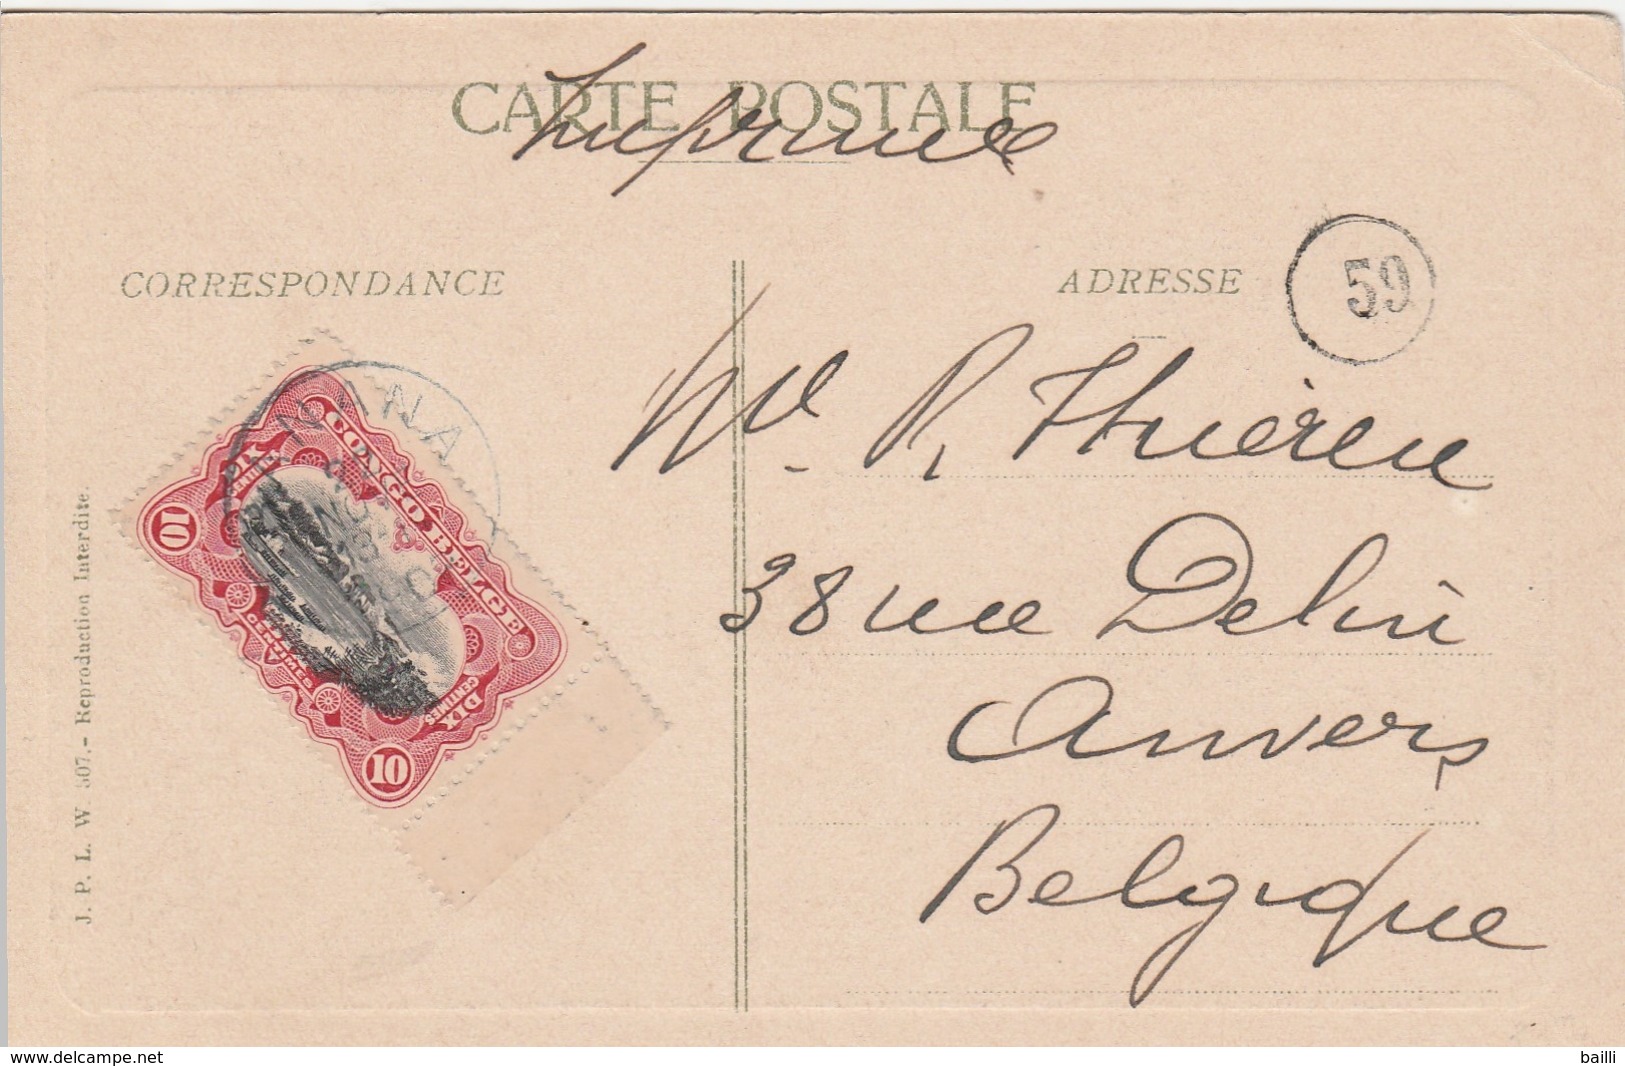 CARTE POSTALE
Imprimé
CORRESPONDANCE
ADRESSE
59
CONGO BELGE
DIX CENTIMES
DIX CENTIMES
10
10
Mr R. Thiéren
38 rue Delin
Anvers
Belgique
J. P. L. W 507.- Reproduction Interdite.
www.delcampe.net
bailli